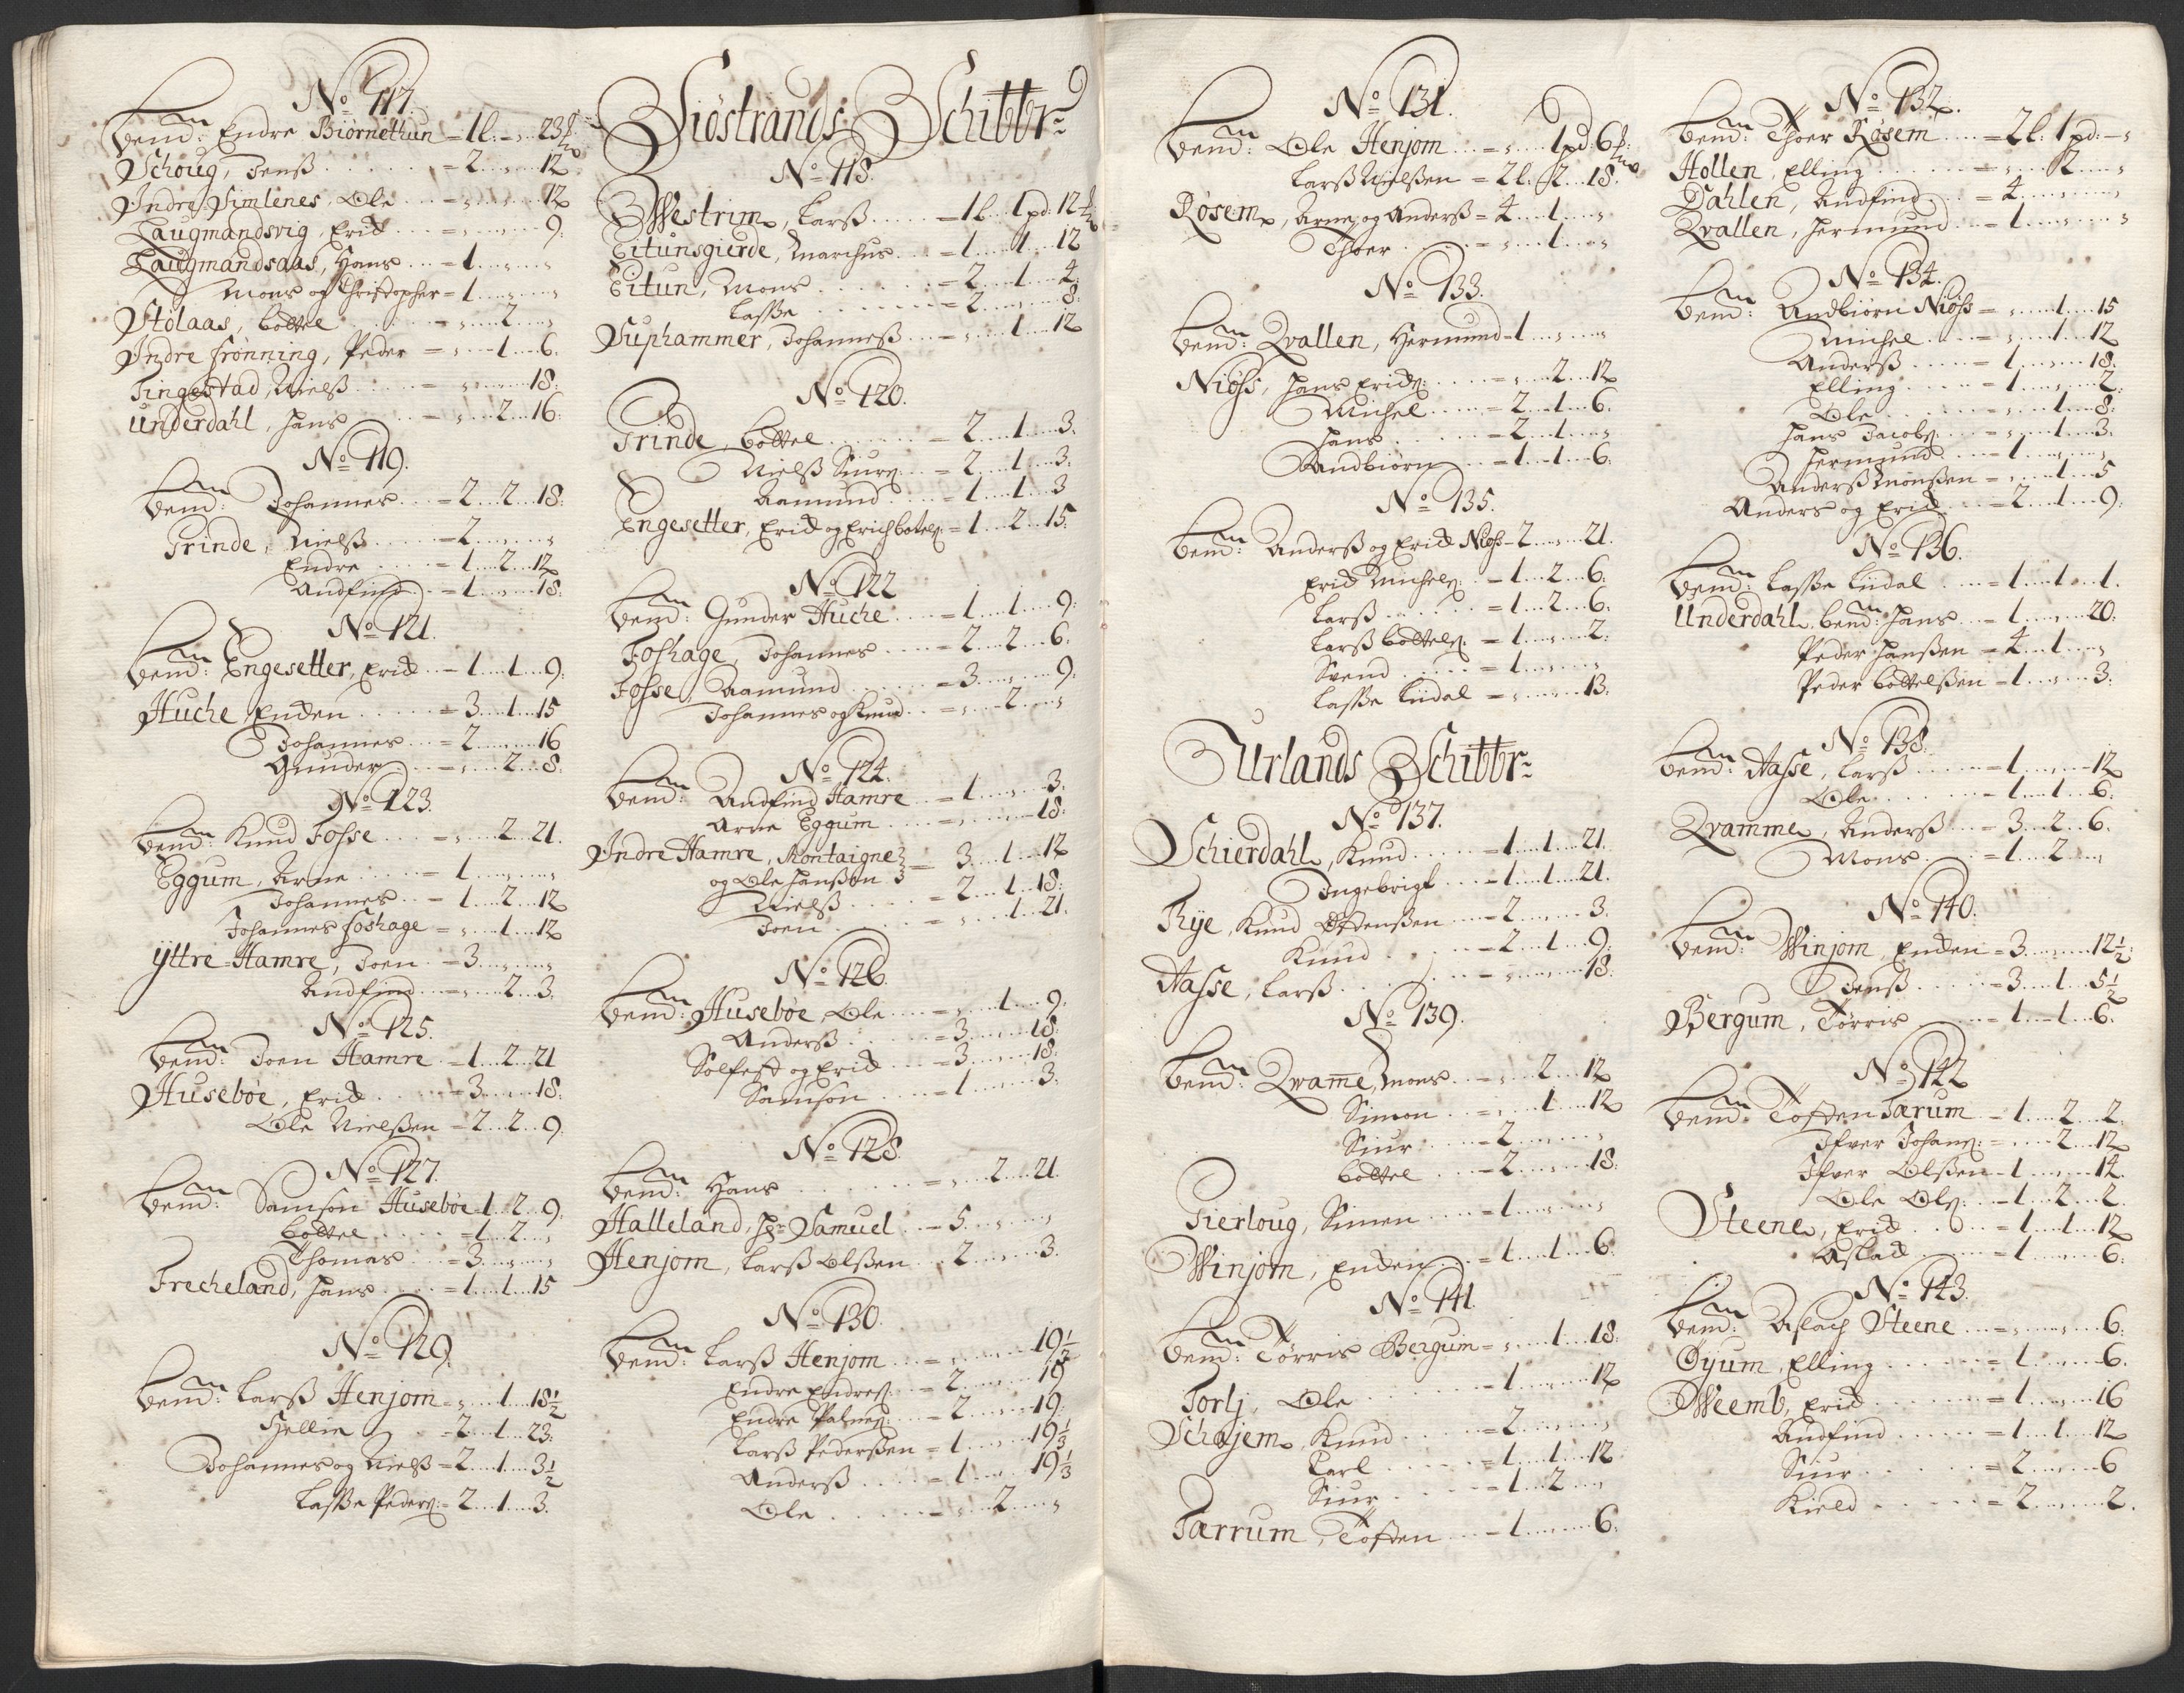 No 117.
bemd: Endre Biörnethun = 1 l: „ 23 ℔
Schoug, Jenß = 2 „ 12
Indre Simlenes, Ole = „ „ 12
Laugmandsvig, Erick = „ „ 9.
Laugmandsaas, Hans = 1 „ „
Mons og Christopher = 1 „ „
Stölaas, bottel = „ 2 „
Indre Frönning, Peder = „ 1 6.
Tingestad, Nielß = „ „ 18.
Underdahl, Hans = „ 2 16.
No 119.
bemd: Johannes = 2 2 18.
Trinde, Nielß = 2 „ „
Endre = 1 2 12
Andfind = 1 „ 18.
No 121.
bemd: Engesetter, Erick = 1 1 9.
Huche Enden = 3 1 15
Johannes = 2 „ 16
Gunder = „ 2 8.
No 123.
bemd: Knud Fosse = „ 2 21.
Eggum, Arne = 1 „ „
Johannes = 1 2 12
Johannes Foshage = „ 1 12
yttre-Hamre, Joen = 3 „ „
Andfind = „ 2 3.
No 125.
bemd: Joen Hamre = 1 2 21
Husebøe, Erick = 3 „ 18.
Ole Nielßen = 2 2 9.
No 127.
bemd: Samson Husebøe = 1 2 9.
bottel = 1 2 „
Thomas = 3 „ „
Frecheland, Hans = 1 1 15
No 129.
bemd: Larß Henjom = „ 1 18½
Hellie = 2 1 23.
Johannes og Nielß = 2 1 3½
Lasße Peders: = 2 1 3.
Siöstrands Schibbr:
No 118.
Westrim, Larß = 1 l. 1 pd. 12½
Eitunsgierde, Marchus = 1 1 12
Eitun, Mons = 2 1 4.
Lasße = 2 „ 8.
Suphammer, Johanneß = „ 1 12
No 120.
Trinde, bottel = 2 1 3.
Nielß Siurs: = 2 1 3.
Aamund = 1 1 3
Engesetter, Erick og Erich botels: = 1 2 15.
No 122
bemd: Gunder Huche = 1 1 9.
Foshage, Johannes = 2 2 6.
Fosse, Aamund = 3 „ 9.
Johannes og Knud = „ 2 „
No 124.
bemd: Andfind Hamre = 1 „ 3.
Arne Eggum = „ „ 18.
Indre Hamre, Montaigne = 3 1 12
og Ole Hanßen
Nielß = 2 1 18.
Joen = „ 1 21.
No 126.
bemd: Husebøe, Ole = „ 1 9.
Anderß = 3 „ 18.
Solfest og Erick = 3 „ 18.
Samson = 1 „ 3.
No 128.
bemd: Hans = „ 2 21.
Halleland, Hr Samuel = 5 „ „
Henjom, Larß Olßen = 2 „ 3.
No 130.
bemd: Larß Henjom = „ „ 19½
Endre Endres: = 2 „ 19
Endre Palmes: = 2 „ 19.
Larß Pederßen = 1 „ 19⅓
Anderß = 1 „ 19⅓
Ole = „ 2 „
No 131.
bemd: Ole Henjom = „ 1 pd: 6
Larß Nielßen = 2 l. 2 18.
Røsem, Arne og Anderß = 4 1 „
Thoer = „ 1 „
No 133.
bemd: Qvallen, Hermund = 1 „ „
Niøss, Hans Ericks: = „ 2 12
Michel = 2 1 6.
Hans = 2 1 „
Andbiörn = 1 1 6.
No 135.
bemd: Anderß og Erick Niøss = 2 „ 21.
Erick Michels: = 1 2 6.
Larß = 1 2 6.
Larß bottels: = 1 „ 2.
Svend = 1 „ „
Lasße Lidal = „ „ 13.
Urlands Schibbr:
No 137.
Schierdahl, Knud = 1 1 21.
Ingebrigt = 1 1 21.
Rye, Knud Ostenßen = 2 „ 3.
Knud = 2 1 9.
Aasse, Larß = „ „ 18.
No 139.
bemd: Qvam̅e, Mons = „ 2 12
Simon = „ 1 12
Siur = 2 „ „
bottel = 2 „ 18.
Tierloug, Simen = 1 „ „
Winjom, Enden = 1 1 6.
No 141.
bemd: Törris Bergum = „ 1 18.
Torlj, Ole = 1 „ 12
Schajem, Knud = 2 „ „
Carl = 1 1 12
Siur = 1 2 „
Tærrum, Tosten = 1 „ 6.
No 132.
bemd: Thoer Røsem = 2 l: 1 pd: „
Hollen, Elling = „ 2 „
Dahlen, Andfind = 4 „ „
Qvallen, Hermund = 1 „ „
No 134.
bemd: Andbiörn Niøss = „ 1 15
Michel = „ 1 12
Anderß = 1 „ 18.
Elling = 1 „ 2.
Ole = „ 1 8.
Hans Jacobs: = „ 1 3.
Hermund = 1 „ „
Anderß Monßen = „ 1 5
Anders og Erick = 2 1 9.
No 136.
bemd: Lasße Lidal = 1 1 1.
Underdahl, bemd: Hans = 1 „ 20.
Peder Hanßen = 4 1 „
Peder bottelßen = 1 „ 3.
No 138.
bemd: Aasse, Larß = 1 „ 12
Ole = 1 1 6.
Qvamme, Anderß = 3 2 6.
Mons = 1 2 „
No 140.
bemd: Winjom, Enden = 3 „ 12½
Jenß = 3 1 5½
Bergum, Törris = 1 1 6.
No 142
bemd: Tosten Tærum = 1 2 2.
Ifver Johans: = „ 2 12
Ifver Olßen = 1 „ 12.
Ole Ols: = 1 2 2.
Steene, Erick = 1 1 12
Aslack = 1 „ 6.
No 143.
bemd: Aslach Steene = „ „ 6.
Øyum, Elling = 1 „ 6.
Weemb, Erick = 1 „ 16
Andfind = 1 1 12
Siur = 2 „ 6
Kield = 2 „ 2.